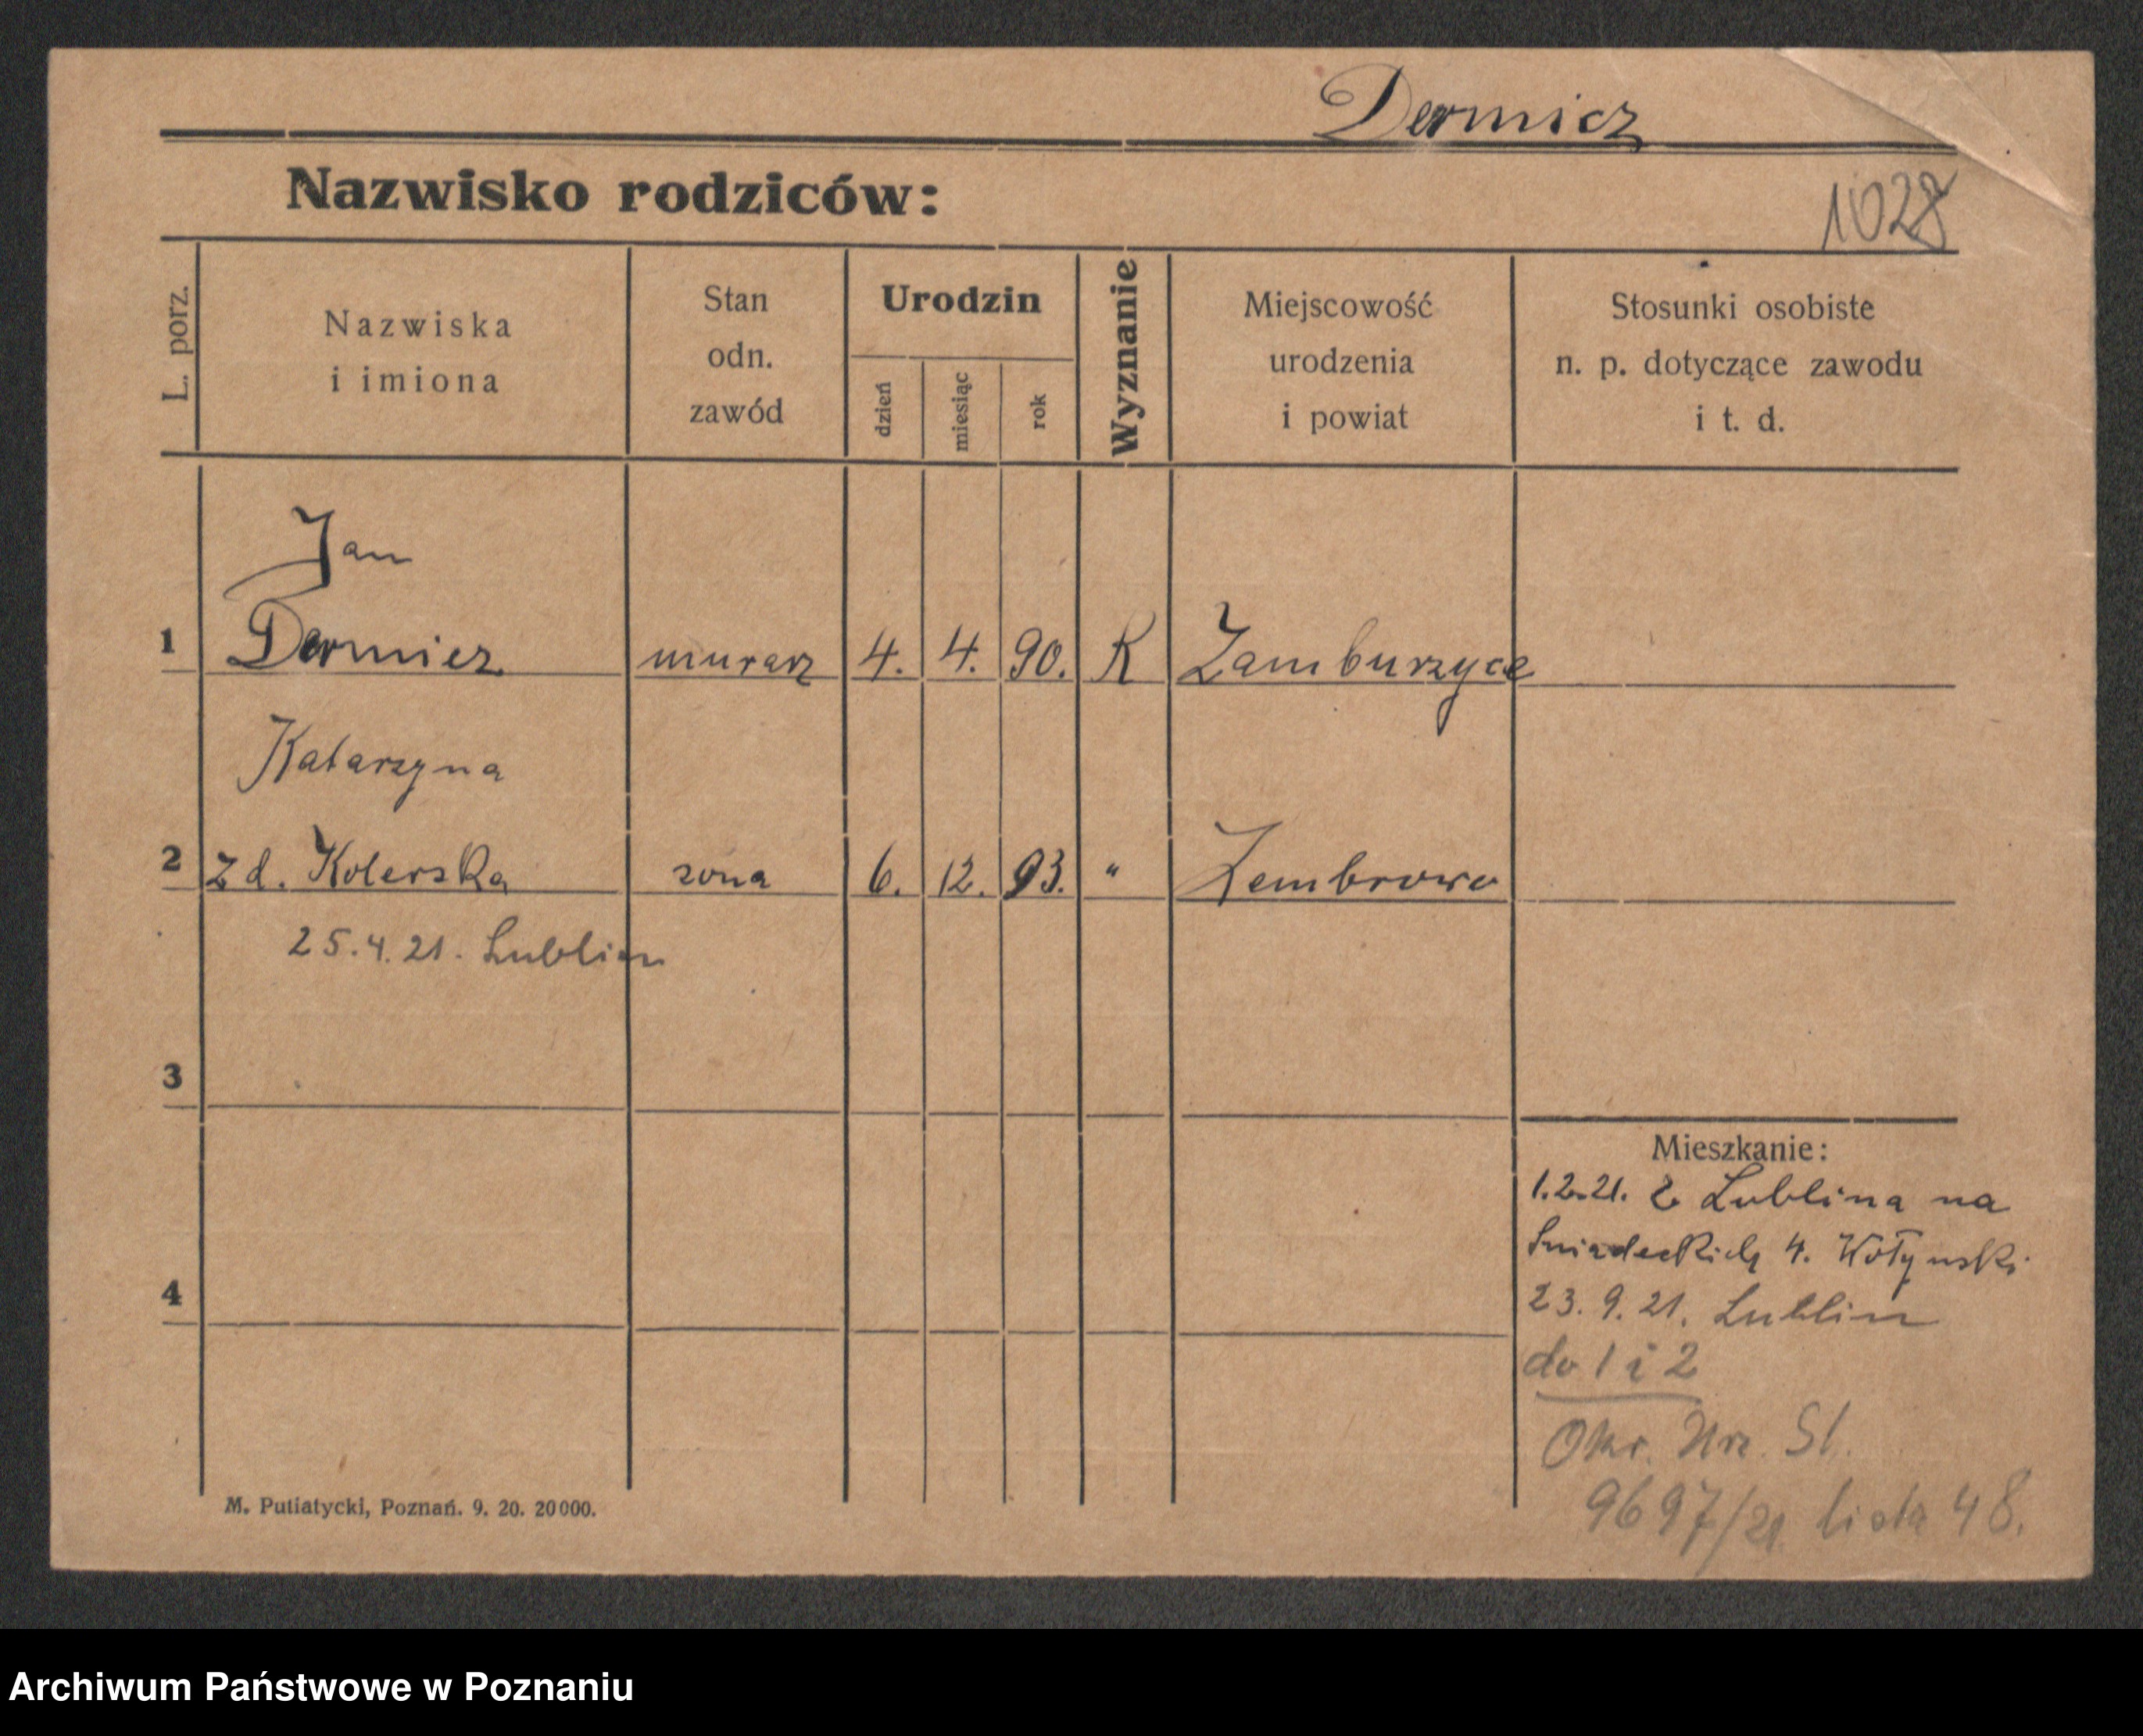 Dermicz
Nazwisko rodziców:
1028
L. porz.
Nazwiska
i imiona
Stan
odn.
zawód
Urodzin
dzień
miesiąc
rok
Wyznanie
Miejscowość
urodzenia
i powiat
Stosunki osobiste
n. p. dotyczące zawodu
i t. d.
Jan
1 Dermicz murarz 4. 4. 90. K Zamburzyce
Katarzyna
2 zd. Kolerska zona 6. 12. 93. " Zembrowo
25.4.21. Lublin
3
Mieszkanie:
1.2.21. z Lublina na
Sniadeckich 4. Wołynski
4
23.9.21. Lublin
do 1 i 2
Okr. Urz. Sl.
9697/21 lista 48.
M. Putiatycki, Poznań. 9. 20. 20000.
Archiwum Państwowe w Poznaniu